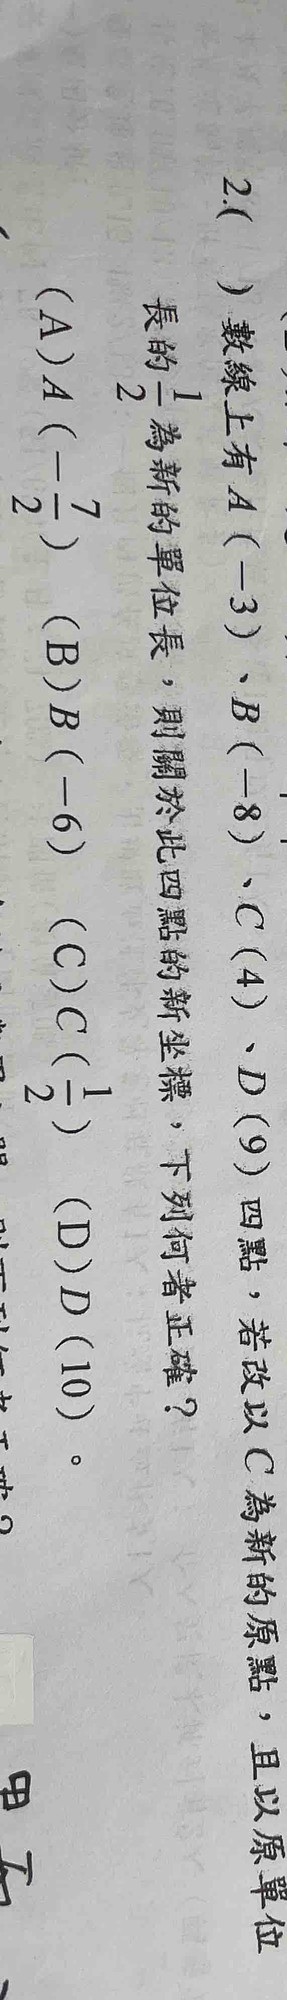 2.(　)數線上有A(−3)、B(−8)、C(4)、D(9)四點，若改以C為新的原點，且以原單位
長的1/2為新的單位長，則關於此四點的新坐標，下列何者正確？
(A)A(−7/2)　(B)B(−6)　(C)C(1/2)　(D)D(10)。